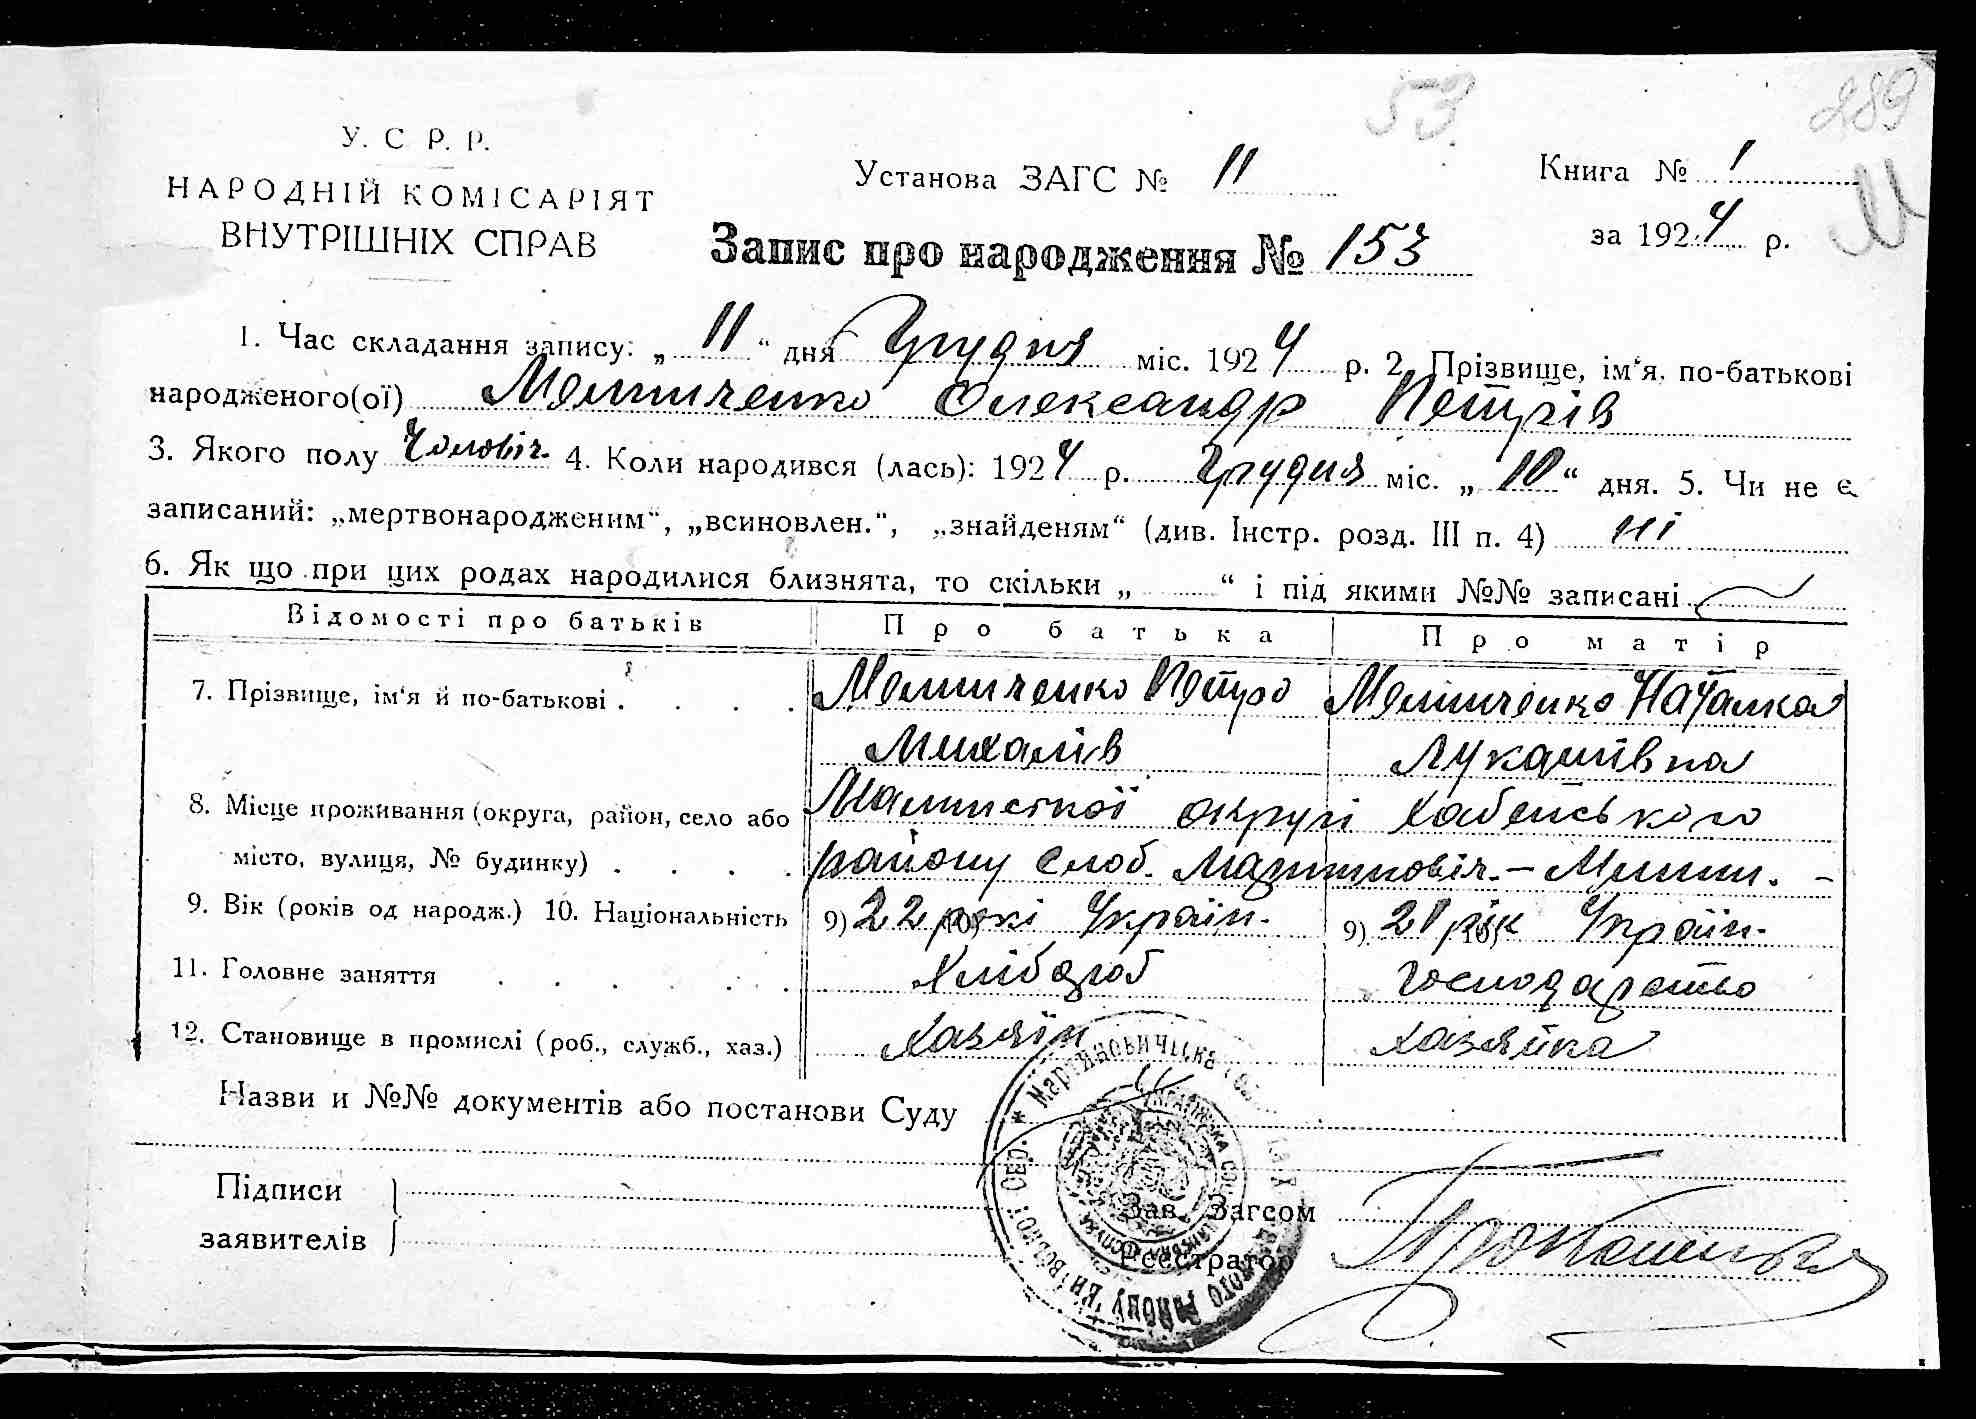 53
289
У. С. Р. Р.
НАРОДНІЙ КОМІСАРІЯТ
ВНУТРІШНІХ СПРАВ
Установа ЗАГС № 11
Книга № 1
за 1924 р.
Запис про народження № 153
1. Час складання запису: „ 11 “ дня Грудня міс. 1924 р. 2. Прізвище, ім‘я, по-батькові
народженого(ої) Олександр Петрів
3. Якого полу Чоловіч. 4. Коли народився (лась): 1924 р. Грудня міс. „ 10 “ дня. 5. Чи не є
записаний: „мертвонародженим“, „всиновлен.“, „знайденям“ (див. Інстр. розд. III п. 4) ні
6. Як що при цих родах народилися близнята, то скільки „ “ і під якими №№ записані
Відомості про батьків Про батька Про матір
7. Прізвище, ім‘я й по-батькові . . . . Петро Наталка
Михалів Лукашівна
8. Місце проживання (округа, район, село або округі Хабенського
місто, вулиця, № будинку) . . . . району Слоб.
9. Вік (років од народж.) 10. Національність 9) 22 рокі 10) Україн. 9) 21 рік 10) Україн.
11. Головне заняття . . . . . Хлібороб Господарство
12. Становище в промислі (роб., служб., хаз.) Хазяїн Хазяйка
Назви и №№ документів або постанови Суду
Підписи
заявителів
Зав. Загсом
Реєстратор